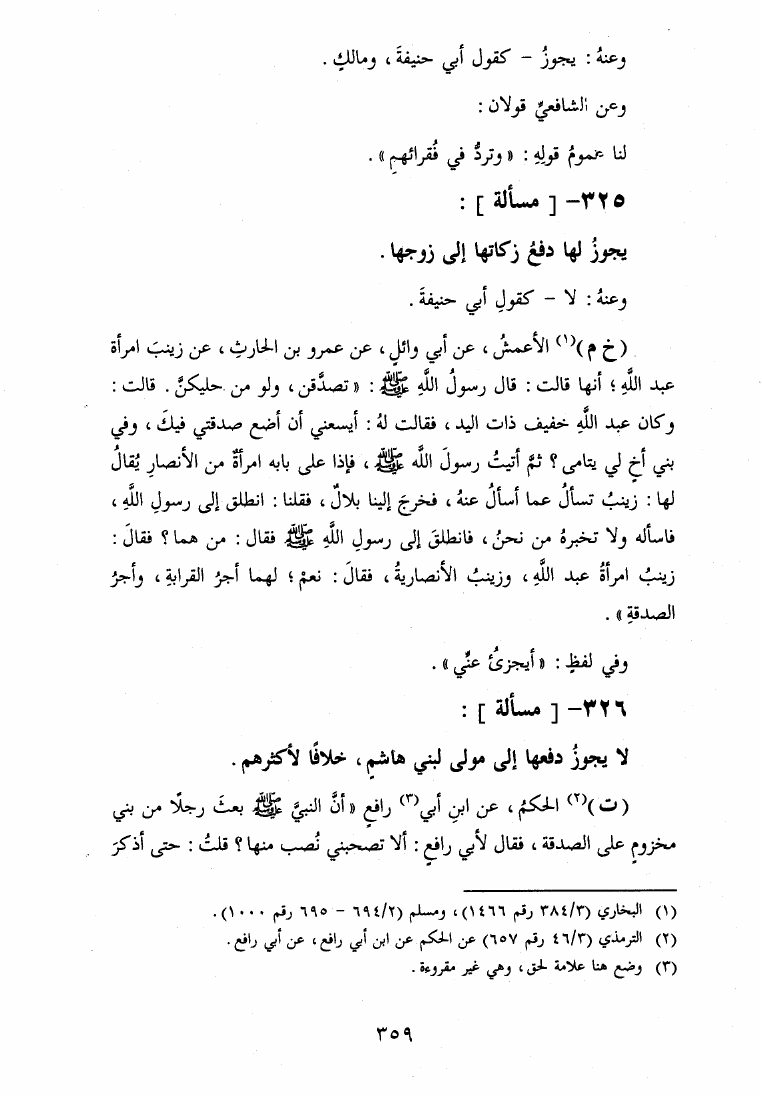 وعنهُ : يجوزُ - كقول أبي حنيفةَ ، ومالكٍ .
وعن الشافعيِّ قولان :
لنا عمومُ قولِهِ : « وتردُّ في فُقرائهم » .
٣٢٥- [ مسألة ] :
يجوزُ لها دفعُ زكاتها إلى زوجها .
وعنهُ : لا - كقولِ أبي حنيفةَ .
(خ م)(١) الأعمشُ ، عن أبي وائلٍ ، عن عمرو بن الحارثِ ، عن زينبَ امرأة
عبد اللَّهِ ؛ أنها قالت : قال رسولُ اللَّهِ ﷺ : « تصدَّقن ، ولو من حليكنَّ . قالت :
وكان عبد اللَّهِ خفيف ذات اليد ، فقالت لهُ : أيسعني أن أضع صدقتي فيكَ ، وفي
بني أخٍ لي يتامى ؟ ثمَّ أتيتُ رسولَ اللَّه ﷺ ، فإذا على بابه امرأةٌ من الأنصارِ يُقالُ
لها : زينبُ تسألُ عما أسألُ عنهُ ، فخرجَ إلينا بلالٌ ، فقلنا : انطلق إلى رسولِ اللَّهِ ،
فاسأله ولا تخبرهُ من نحنُ ، فانطلقَ إلى رسولِ اللَّهِ ﷺ فقال : من هما ؟ فقالَ :
زينبُ امرأةُ عبد اللَّهِ ، وزينبُ الأنصاريةُ ، فقالَ : نعمْ ؛ لهما أجرُ القرابةِ ، وأجرُ
الصدقةِ » .
وفي لفظٍ : « أيجزئُ عنِّي » .
٣٢٦- [ مسألة ] :
لا يجوزُ دفعها إلى مولى لبني هاشمٍ ، خلافًا لأكثرهم .
(ت)(٢) الحكمُ ، عن ابنِ أبي(٣) رافعٍ « أنَّ النبيَّ ﷺ بعثَ رجلًا من بني
مخزومٍ على الصدقة ، فقال لأبي رافعٍ : ألا تصحبني نُصب منها ؟ قلتُ : حتى أذكرَ
(١) البخاري (٣٨٤/٣ رقم ١٤٦٦) ، ومسلم (٦٩٤/٢ - ٦٩٥ رقم ١٠٠٠) .
(٢) الترمذي (٤٦/٣ رقم ٦٥٧) عن الحكم عن ابن أبي رافع ، عن أبي رافع .
(٣) وضع هنا علامة لحق ، وهي غير مقروءة .
٣٥٩